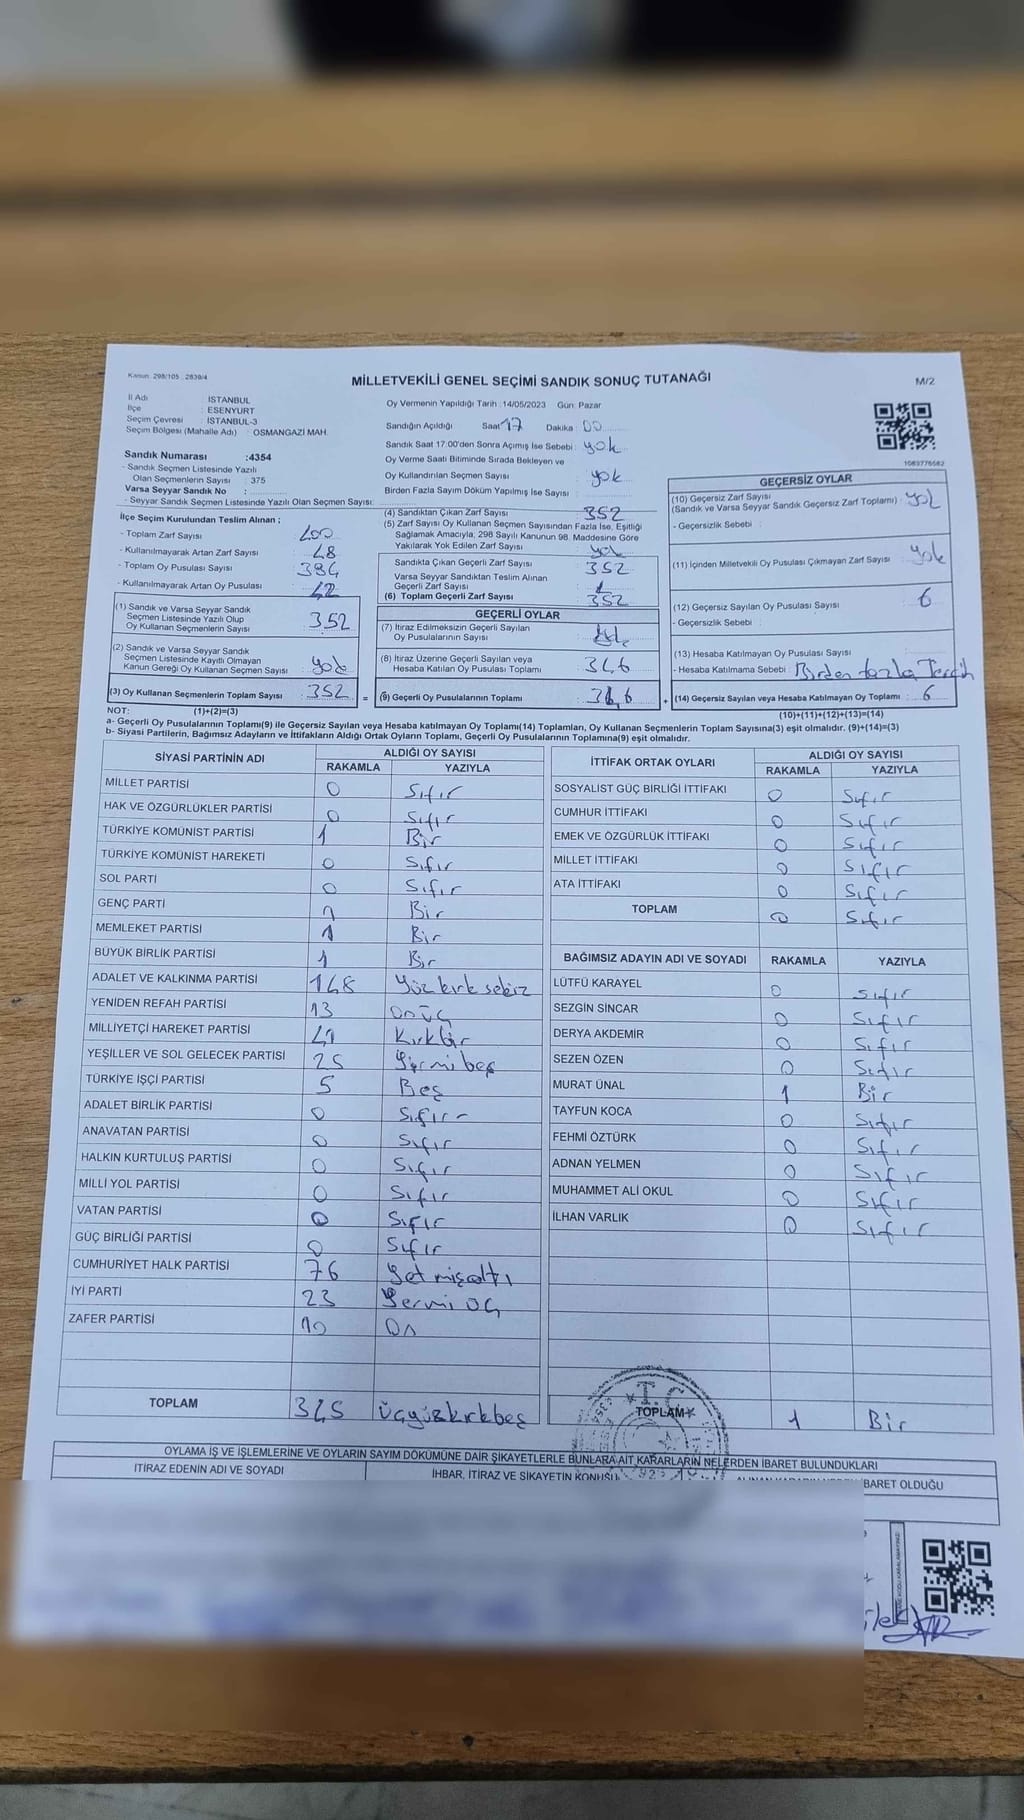 Kanun: 298/105 , 2839/4
MİLLETVEKİLİ GENEL SEÇİMİ SANDIK SONUÇ TUTANAĞI
M/2
İl Adı : İSTANBUL
İlçe : ESENYURT
Seçim Çevresi : İSTANBUL-3
Seçim Bölgesi (Mahalle Adı) : OSMANGAZİ MAH.
Sandık Numarası :4354
- Sandık Seçmen Listesinde Yazılı
Olan Seçmenlerin Sayısı : 375
Varsa Seyyar Sandık No :
- Seyyar Sandık Seçmen Listesinde Yazılı Olan Seçmen Sayısı:
Oy Vermenin Yapıldığı Tarih : 14/05/2023 Gün: Pazar
Sandığın Açıldığı Saat 17 Dakika : 00
Sandık Saat 17:00'den Sonra Açımış İse Sebebi : yok
Oy Verme Saati Bitiminde Sırada Bekleyen ve
Oy Kullandırılan Seçmen Sayısı : yok
Birden Fazla Sayım Döküm Yapılmış İse Sayısı :
1083776682
İlçe Seçim Kurulundan Teslim Alınan ;
- Toplam Zarf Sayısı : 400
- Kullanılmayarak Artan Zarf Sayısı : 48
- Toplam Oy Pusulası Sayısı : 394
- Kullanılmayarak Artan Oy Pusulası : 42
(1) Sandık ve Varsa Seyyar Sandık
Seçmen Listesinde Yazılı Olup
Oy Kullanan Seçmenlerin Sayısı : 352
(2) Sandık ve Varsa Seyyar Sandık
Seçmen Listesinde Kayıtlı Olmayan
Kanun Gereği Oy Kullanan Seçmen Sayısı : yok
(3) Oy Kullanan Seçmenlerin Toplam Sayısı : 352 =
(4) Sandıktan Çıkan Zarf Sayısı : 352
(5) Zarf Sayısı Oy Kullanan Seçmen Sayısından Fazla İse, Eşitliği
Sağlamak Amacıyla, 298 Sayılı Kanunun 98. Maddesine Göre
Yakılarak Yok Edilen Zarf Sayısı : yok
Sandıkta Çıkan Geçerli Zarf Sayısı : 352
Varsa Seyyar Sandıktan Teslim Alınan
Geçerli Zarf Sayısı :
(6) Toplam Geçerli Zarf Sayısı : 352
GEÇERLİ OYLAR
(7) İtiraz Edilmeksizin Geçerli Sayılan
Oy Pusulalarının Sayısı :
(8) İtiraz Üzerine Geçerli Sayılan veya
Hesaba Katılan Oy Pusulası Toplamı : 346
(9) Geçerli Oy Pusulalarının Toplamı : 346 +
GEÇERSİZ OYLAR
(10) Geçersiz Zarf Sayısı
(Sandık ve Varsa Seyyar Sandık Geçersiz Zarf Toplamı) : yok
- Geçersizlik Sebebi :
(11) İçinden Milletvekili Oy Pusulası Çıkmayan Zarf Sayısı : yok
(12) Geçersiz Sayılan Oy Pusulası Sayısı : 6
- Geçersizlik Sebebi :
(13) Hesaba Katılmayan Oy Pusulası Sayısı :
- Hesaba Katılmama Sebebi : Birden fazla Tercih
(14) Geçersiz Sayılan veya Hesaba Katılmayan Oy Toplamı : 6
NOT: (1)+(2)=(3)
(10)+(11)+(12)+(13)=(14)
a- Geçerli Oy Pusulalarının Toplamı(9) ile Geçersiz Sayılan veya Hesaba katılmayan Oy Toplamı(14) Toplamları, Oy Kullanan Seçmenlerin Toplam Sayısına(3) eşit olmalıdır. (9)+(14)=(3)
b- Siyasi Partilerin, Bağımsız Adayların ve İttifakların Aldığı Ortak Oyların Toplamı, Geçerli Oy Pusulalarının Toplamına(9) eşit olmalıdır.
SİYASİ PARTİNİN ADI ALDIĞI OY SAYISI
RAKAMLA YAZIYLA
MİLLET PARTİSİ 0 Sıfır
HAK VE ÖZGÜRLÜKLER PARTİSİ 0 Sıfır
TÜRKİYE KOMÜNİST PARTİSİ 1 Bir
TÜRKİYE KOMÜNİST HAREKETİ 0 Sıfır
SOL PARTİ 0 Sıfır
GENÇ PARTİ 1 Bir
MEMLEKET PARTİSİ 1 Bir
BÜYÜK BİRLİK PARTİSİ 1 Bir
ADALET VE KALKINMA PARTİSİ 148 Yüzkırksekiz
YENİDEN REFAH PARTİSİ 13 Onüç
MİLLİYETÇİ HAREKET PARTİSİ 41 Kırkbir
YEŞİLLER VE SOL GELECEK PARTİSİ 25 Yirmibeş
TÜRKİYE İŞÇİ PARTİSİ 5 Beş
ADALET BİRLİK PARTİSİ 0 Sıfır
ANAVATAN PARTİSİ 0 Sıfır
HALKIN KURTULUŞ PARTİSİ 0 Sıfır
MİLLİ YOL PARTİSİ 0 Sıfır
VATAN PARTİSİ 0 Sıfır
GÜÇ BİRLİĞİ PARTİSİ 0 Sıfır
CUMHURİYET HALK PARTİSİ 76 Yetmişaltı
İYİ PARTİ 23 Yermi üç
ZAFER PARTİSİ 10 On
TOPLAM 345 Üçyüzkırkbeş
İTTİFAK ORTAK OYLARI ALDIĞI OY SAYISI
RAKAMLA YAZIYLA
SOSYALİST GÜÇ BİRLİĞİ İTTİFAKI 0 Sıfır
CUMHUR İTTİFAKI 0 Sıfır
EMEK VE ÖZGÜRLÜK İTTİFAKI 0 Sıfır
MİLLET İTTİFAKI 0 Sıfır
ATA İTTİFAKI 0 Sıfır
TOPLAM 0 Sıfır
BAĞIMSIZ ADAYIN ADI VE SOYADI RAKAMLA YAZIYLA
LÜTFÜ KARAYEL 0 Sıfır
SEZGİN SİNCAR 0 Sıfır
DERYA AKDEMİR 0 Sıfır
SEZEN ÖZEN 0 Sıfır
MURAT ÜNAL 1 Bir
TAYFUN KOCA 0 Sıfır
FEHMİ ÖZTÜRK 0 Sıfır
ADNAN YELMEN 0 Sıfır
MUHAMMET ALİ OKUL 0 Sıfır
İLHAN VARLIK 0 Sıfır
T.C
TOPLAM 1 Bir
OYLAMA İŞ VE İŞLEMLERİNE VE OYLARIN SAYIM DÖKÜMÜNE DAİR ŞİKAYETLERLE BUNLARA AİT KARARLARIN NELERDEN İBARET BULUNDUKLARI
İTİRAZ EDENİN ADI VE SOYADI İHBAR, İTİRAZ VE ŞİKAYETİN KONUSU BARET OLDUĞU